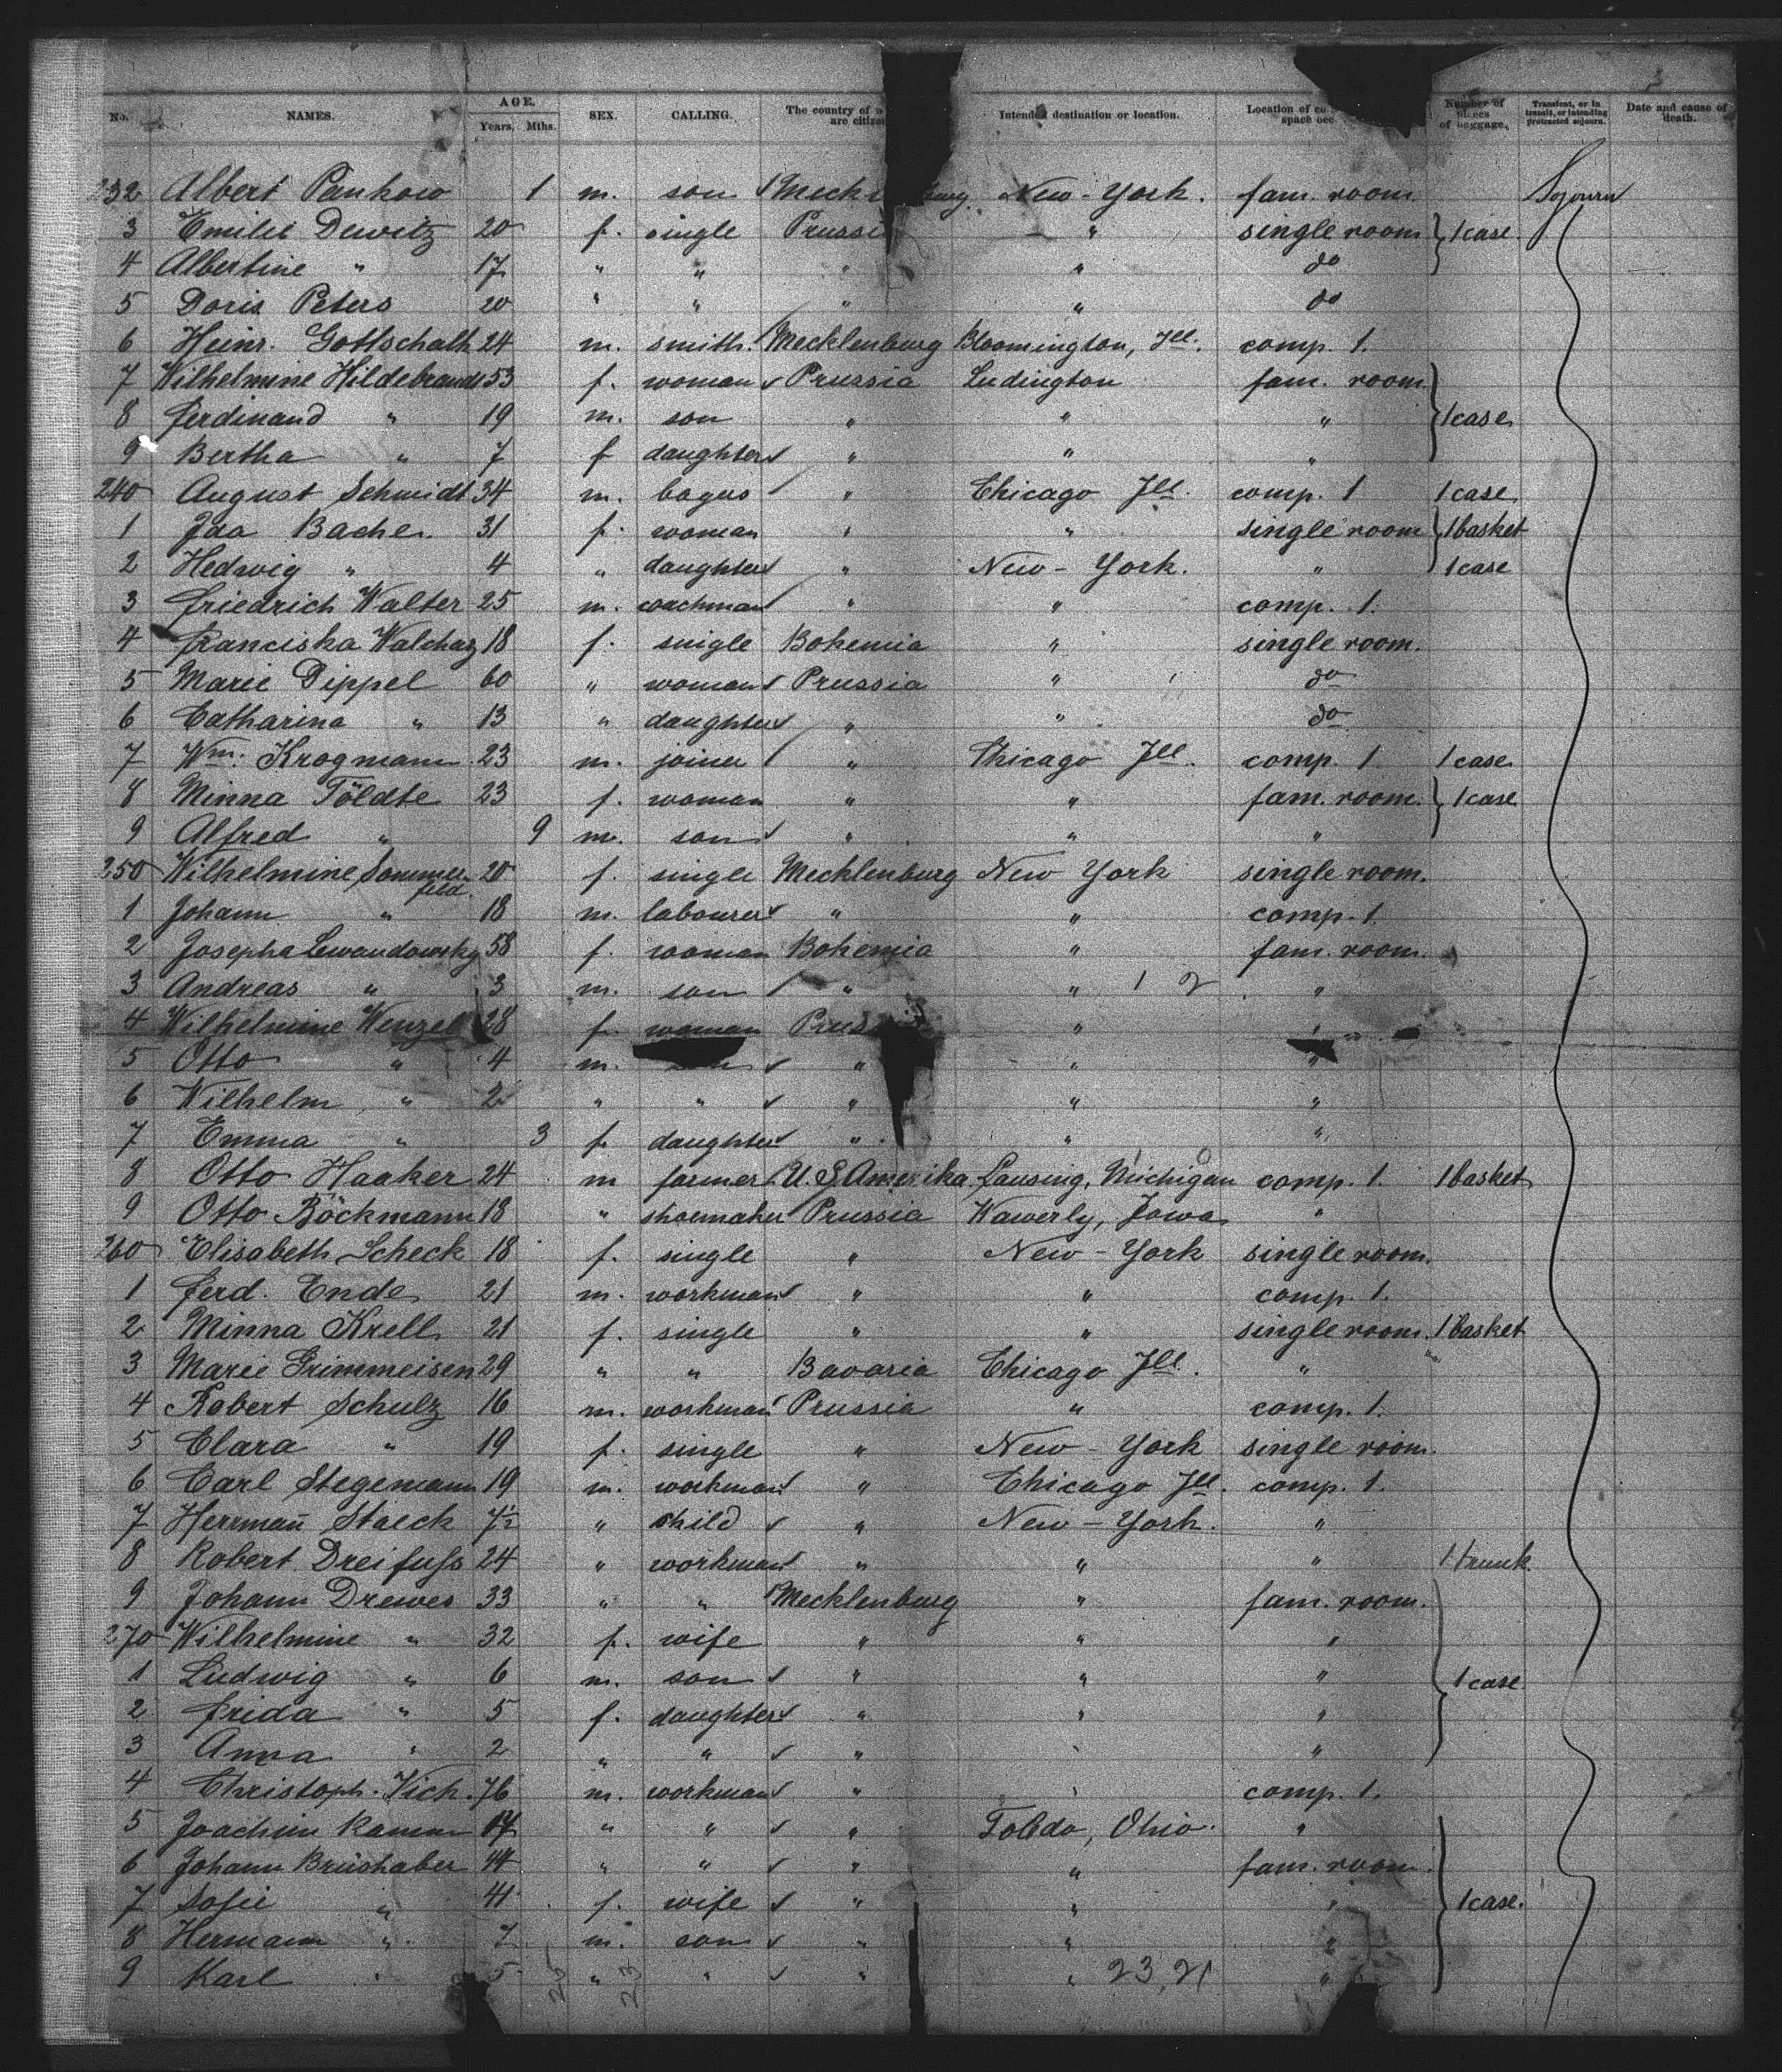 No. NAMES. AGE. Years, Mths. SEX. CALLING. The country of are citize Intended destination or location. Location of co space occ Number of pieces of baggage. Transient, or in transit, or intending protracted sojourn. Date and cause of death.
232 Albert Pankow 1 m. son Meckl burg. New-York. fam. room. Sojourn
3 Emilie Dewitz 20 f. single Prussia " single room } 1 case.
4 Albertine " 17 " " " " do
5 Doris Peters 20 " " " " do
6 Heinr. Gottschalk 24 m. smith. Mecklenburg Bloomington, Ill. comp. 1.
7 Wilhelmine Hildebrandt 53 f. woman Prussia Ludington fam. room
8 Ferdinand " 19 m. son " " " } 1 case
9 Bertha " 7 f daughter " " "
240 August Schmidt 34 m. " Chicago Ill. comp. 1 1 case
1 Ida Bacher 31 f. woman " " single room } 1 basket
2 Hedwig " 4 " daughter " New-York. " 1 case
3 Friedrich Walter 25 m. coachman " " comp. 1.
4 Franciska 18 f. single Bohemia " single room.
5 Marie Dippel 60 " woman Prussia " do
6 Catharina " 13 " daughter " " do
7 Wm. Krogmann 23 m. joiner " Chicago Ill. comp. 1. 1 case
8 Minna Töldte 23 f. woman " " fam. room. } 1 case
9 Alfred " 9 m. son " " "
250 Wilhelmine Sommerfeld. 20 f. single Mecklenburg New York single room.
1 Johann " 18 m. labourer " " comp. 1.
2 Josepha Lewandowsky 58 f. woman Bohemia " fam. room.
3 Andreas " 3 m. son " " 1 2 "
4 Wilhelmine Wenzel 28 f. woman Pruss " "
5 Otto " 4 m. " " "
6 Wilhelm " 2 " " " " "
7 Emma " 3 f. daughter " " "
8 Otto Haaker 24 m farmer U. S. Amerika. Lansing, Michigan comp. 1. 1 basket
9 Otto Böckmann 18 " shoemaker Prussia Wawerly, Jowa "
260 Elisabeth Scheck 18 f. single " New-York single room.
1 Ferd. Ende 21 m. workman " " comp. 1.
2 Minna Krell 21 f. single " " single room. 1 basket
3 Marie Grimmeisen 29 " " Bavaria Chicago Ill. "
4 Robert Schulz 16 m. workman Prussia " comp. 1.
5 Clara " 19 f. single " New-York single room.
6 Carl Stegemann 19 m. workman " Chicago Ill. comp. 1.
7 Herrmañ Staeck 7½ " child " New-York. "
8 Robert Dreifuss 24 " workman " " " 1 trunk.
9 Johann Drewes 33 " " Mecklenburg " fam. room.
270 Wilhelmine " 32 f. wife " " "
1 Ludwig " 6 m. son " " " } 1 case
2 Frida " 5 f. daughter " " "
3 Anna " 2 " " " " "
4 Christoph. 76 m. workman " " comp. 1.
5 Joachim 17 " " " Toledo, Ohio. "
6 Johann Brüshaber 44 " " " " fam. room.
7 Sofie " 41 f. wife " " " } 1 case.
8 Hermann " 7 m. son " " "
9 Karl " 5 " " " " 23,21 "
25 23